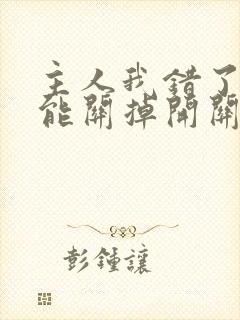 主人我錯了
能關掉開關
彭鍾讓